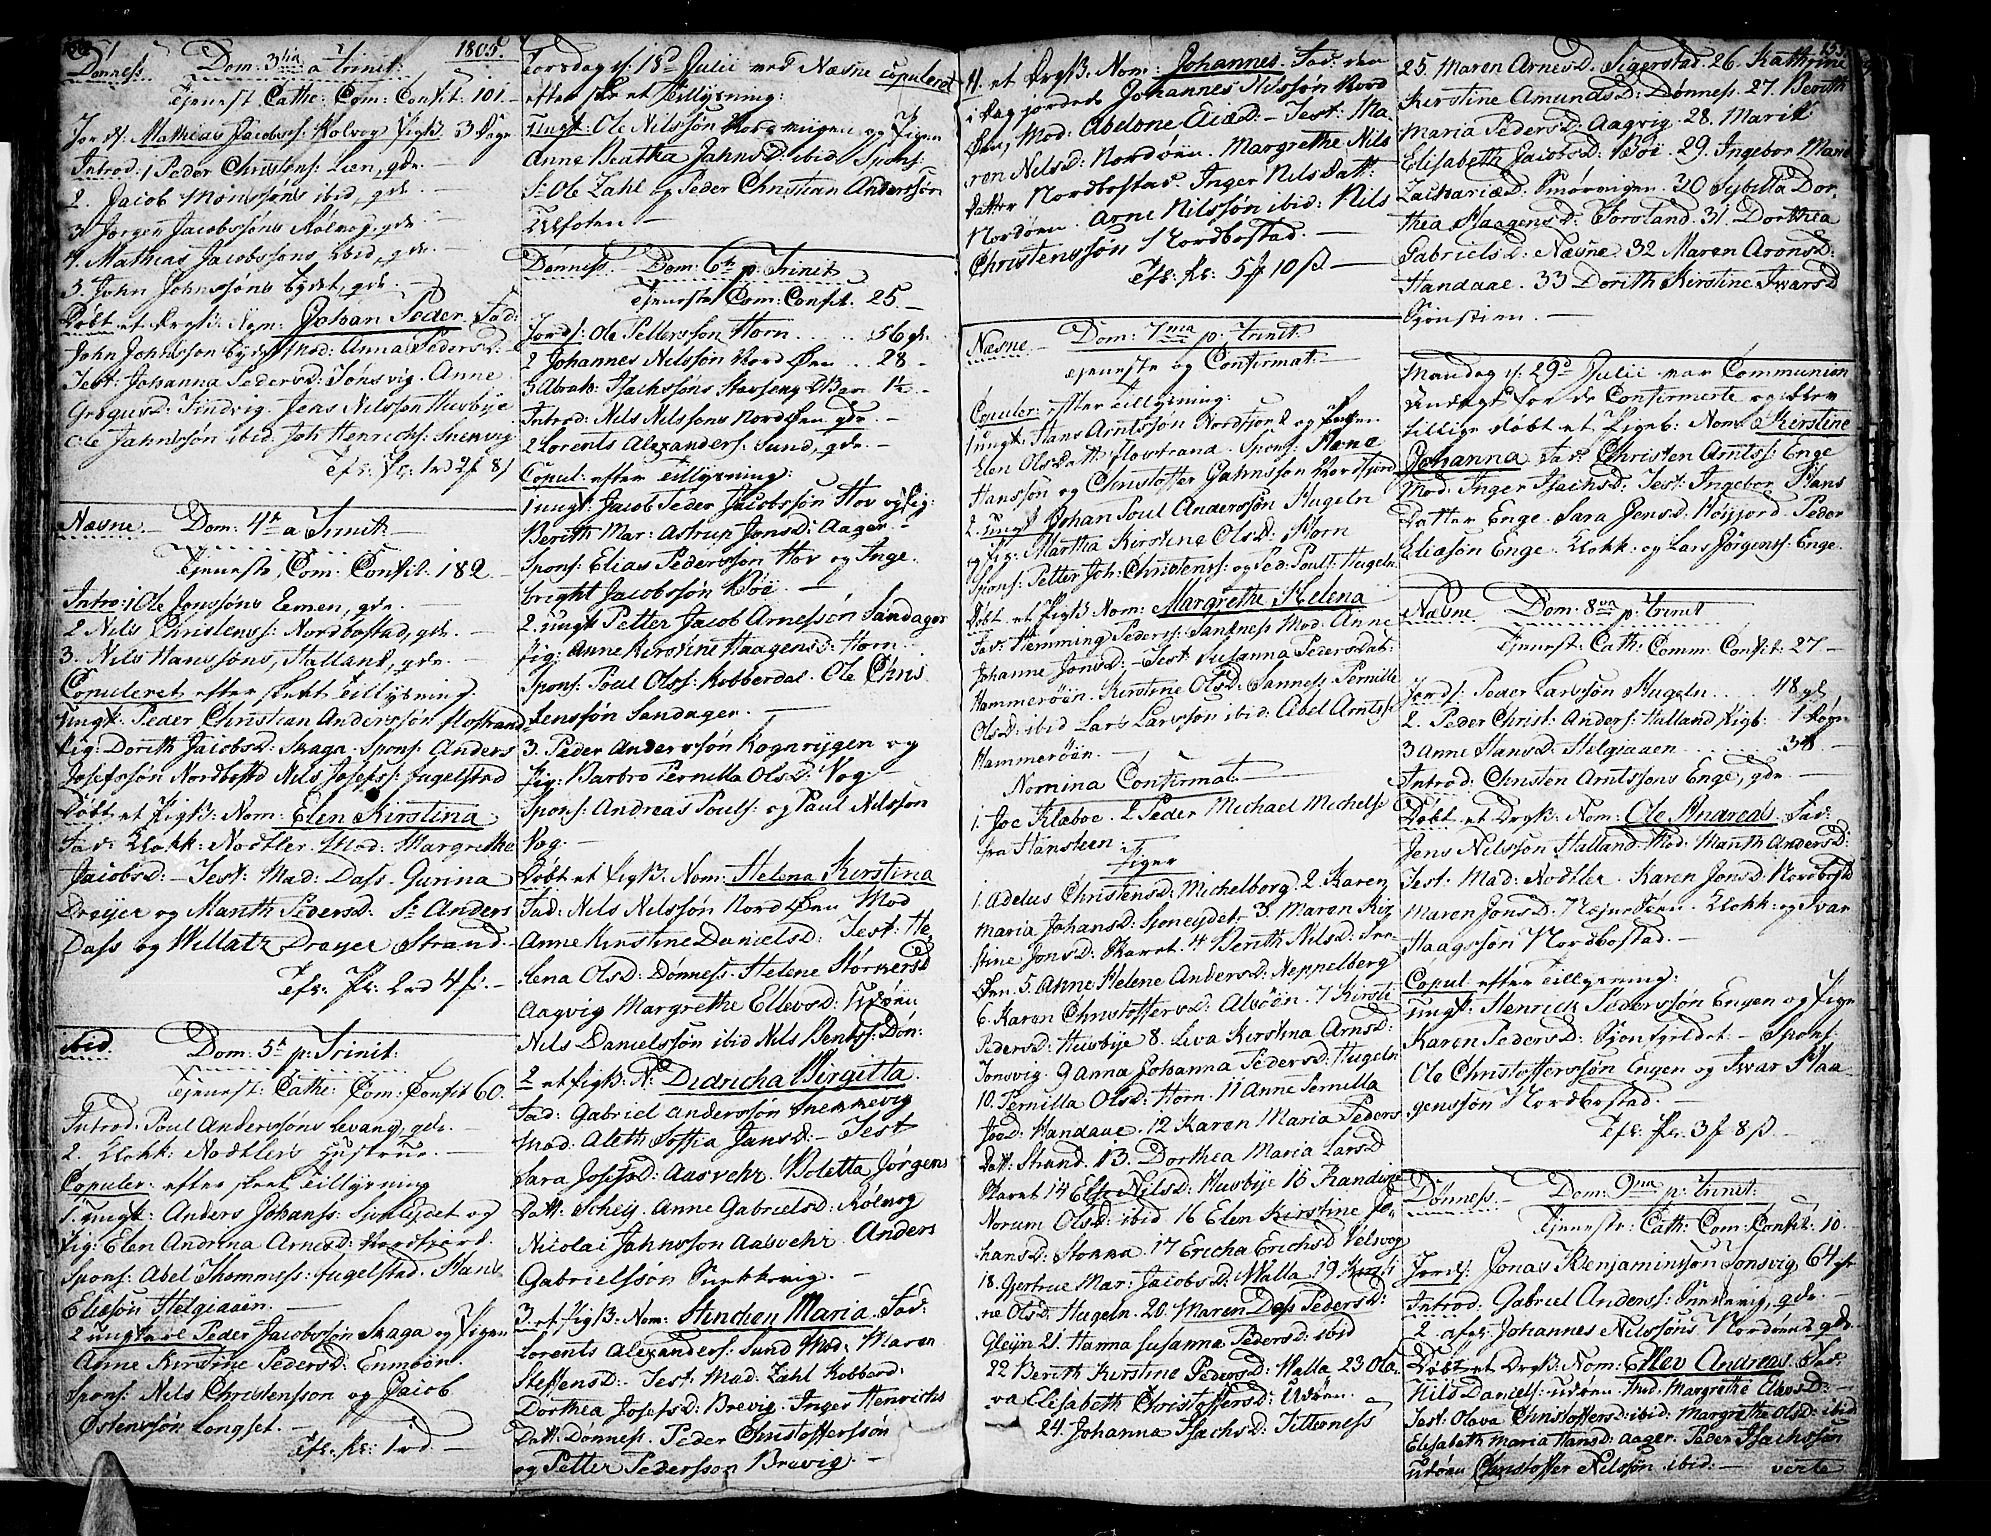 Dønness Dom: 3tia a Trinit: 1805
Tjenest Cathe: Com: Confit: 101
Jordf: Mathias Jacobss: Kolvog Pigeb: 3 Dage
Introd: 1 Peder Christens: Lien, gde.
2. Jacob Monssøns ibid, gde.
3 Jørgen Jacobssøns Rølvog, gde
4. Mathias Jacobssøns ibid, gde.
5 John Johnssøns Eydet, gde.
Døbt et Drgb: Nom: Johan Peder. Fad:
John Johnssøn Eydet Mod: Anna Peders D:
Test: Johanna Peders D: Sønsvig. Anne
Gregus D: Findvig. Jens Nilssøn Husbye
Ole Jahnssøn ibid. Joh Henrichs: Snekvig.
Næsne Dom: 4ta a Trinit
Tjeneste, Com: Confit: 182
Intro: 1 Ole Jonssøns Lemen, gde.
2 Nils Christenss: Nordbostad, gde.
3. Nils Hanssøns, Halland, gde.
Copuleret efter skeet Tillysning
1 ungk: Peder Christian Anderssøn Flostrand
Pig: Dorith Jacobs D: Skaga. Spons: Anders
Josefssøn Nordbostd Nils Josefs: Fugelstad
Døbt et Pigb: Nom: Elen Kirstina
Fad: Klokk: Nodtler. Mod: Margrethe
Jacobs D: Test: Mad: Dass. Gurina
Dreyer og Marith Peders D. Sr Anders
Dass og Willatz Dreyer Strand.
ibid Dom: 5ta p: Trinit:
Tjenest: Cathe: Com: Confit 60.
Introd: Poul Anderssøns Levang, gde.
2. Klokk: Nodtlers Hustrue.
Copuler: efter skeet Tillysning
1. ungk: Anders Johanss: og
Pig: Elen Andrina Arnes D: Nordfjord.
Spons: Abel Thommess: Fugelstad. Hans
Eliesøn Helgiaaen.
2 ungkarl Peder Jacobssøn Skaga og Pigen
Anne Kirstine Peders D: Enmoen.
Spons: Nils Christenssøn og Jacob
Østenssøn Longset.
Torsdag d: 18d Julii ved Næsne copuleret
efter skeet Tillysning:
Ungk: Ole Nilssøn og Pigen
Anne Beatha Jahns D: ibid Spons:
Sr Ole Zahl og Peder Christian Anderssøn
Dønness. Dom: 6ta p: Trinit
Tjeneste Com: Confit. 25
Jordf: Ole Petterssøn Horn 56 gl.
2 Johannes Nilssøn Nord Øen 28
3 Abrah: Isachssøns 1½
Introd: Nils Nilssøns Nord Øen gde.
2 Lorents Alexanders: Sund, gde.
Copul: efter Tillysning:
1 ungk: Jacob Peder Jacobssøn Hov og Pig:
Berith Mar: Astrup Jons D: Aager.
Spons: Elias Pederssøn Hov og Inge
bright Jacobssøn Bøe.
2. ungk Petter Jacob Arnessøn Sandager
Pig: Anne Kirstine Haagens D: Horn.
Spons: Poul Olss: Kobberdal. Ole Chris
tenssøn Sandager.
3. Peder Anderssøn Kognrygen og
Pig: Barbro Pernilla Ols D: Vog
Spons: Andreas Pouls: og Paul Nilssøn
Vog.
Døbt et Pigb: Nom: Helena Kirstina
Fad: Nils Nilssøn Nord Øen Mod
Anne Kirstine Daniels D: Test: He
lena Ols D: Dønness. Helene Størkers D
Aagvig Margrethe Ellevs D: Udøen
Nils Danielssøn ibid Nils Bents: Døn:
2 et Pigb: N: Didricha Birgitta.
Fad: Gabriel Anderssøn Snekkevig
Mod: Aleth Soffia Jans D: Test
Sara Josefs D: Aasvehr. Boletta Jørgens
Datt: Scheij. Anne Gabriels D: Rølvog
Nicolai Jahnssøn Aasvehr. Anders
Gabrielssøn Snekkevig.
3. et Pigb: Nom: Stinchen Maria. Fad:
Lorents Alexanders: Sund Mod: Maren
Steffens D: Test: Mad: Zahl Kobberd:
Dorthea Josefs D: Brevig. Inger Henrichs
Datt: Dønness. Peder Christofferssøn
og Petter Pederssøn Brevig.
4. et Drgb: Nom: Johannes. Fad: den
i dag jordede Johannes Nilssøn Nord
Øen, Mod: Abelone Test: Ma
ren Nils D: Nordøen. Margrethe Nils
Datter Nordbostad. Inger Nils Datt:
Nordøen. Arne Nilssøn ibid: Nils
Christenssøn Nordbostad.
Næsne Dom: 7ma p: Trinit:
Tjeneste og Confirmat:
Copuler: efter Tillysning:
1 ungk: Hans Arntssøn Nordfjord og Pigen
Elen Ols Datt Flostrand. Spons: Hans
Hanssøn og Christoffer Jahnssøn Nordfjord
2. ungk Johan Poul Anderssøn Hugeln
og Pig: Martha Kirstine Ols D: Horn
Spons: Petter Joh: Christenss: og Ped: Pouls: Hugeln
Døbt et Pigb: Nom: Margrethe Helena
Fad: Hemming Peders: Sandness Mod: Anne
Johanne Jons D: Test: Susanna Peders Dat:
Hammerøen. Kirstine Ols D: Sanness Pernille
Ols D: ibid Lars Larssøn ibid: Abel Arnts:
Hammerøen.
Nomina Confirmat:
1. Joe Klæboe. 2 Peder Michael Michels:
fra Hansteen.
Piger
1. Adelus Christens D: Michelborg. 2 Karen
Maria Johans D: 3. Maren Kir
stine Jons D: Skaret. 4 Berith Nils D:
Øen. 5. Anne Helene Anders D: Neppelberg
6. Karen Christoffers D: Alsøen. 7 Kirsti
Peders D: Husbije 8. Leva Kirstina Arns D:
Sonsvig. 9 Anna Johanna Peders D: Hugeln
10. Pernilla Ols D: Horn. 11 Anne Pernilla
Joe D: Handaae. 12 Karen Maria Peders
Datt: Strand. 13. Dorthea Maria Lars D
Skaret 14 Else Nils D: Husbije 15 Randine
Norum Ols D: ibid 16 Elen Kirstine Jo
hans D: Stokka 17 Ericha Erichs D Velsvog
18. Gjertrue Mar: Jacobs D: Walla. 19 Kirsti
ne Ols D. Hugeln. 20. Maren Dass Peders D:
Gleijn 21. Hanna Susanna Peders D: ibid
22 Berith Kirstine Peders D: Walla 23 Ola
va Elisabeth Christoffers D: Udøen.
24. Johanna Isachs D: Titterness
25. Maren Arnes D: Sigerstad. 26. Kathrine
Kirstine Amunds D: Dønness. 27. Berith
Maria Peders D: Aagvig. 28. Marit
Elisabeth Jacobs D: Bøe. 29. Ingebor Marie
Zachariæ D: Smørvigen. 30 Sybilla Dor
thea Haagens D: Forsland. 31. Dorthea
Gabriels D: Næsne. 32 Maren Arons D:
Handaae. 33 Dorith Kirstine Ivars D
Mandag d: 29d Julii var Communion
andagt for de Confirmerte og blev
tillige døbt et Pigeb: Nom: Kirstine
Johanna Fad: Christen Arnts: Enge
Mod: Inger Isachs D: Test: Ingebor Hans
Datter Enge. Sara Jens D: Høyjord. Peder
Eliasøn Enge. Klokk: og Lars Jørgens: Enge.
Næsne Dom: 8va p: Trinit
Tjenest: Cath: Comm: Confit: 27
Jordf: Peder Larssøn Hugeln 48 gl
2. Peder Christ: Anders: Halland Pigb: 1 Døgn
3 Anne Hans D: Helgiaaen 34
Introd: Christen Arntssøns Enge, gde.
Døbt et Drgb: Nom: Ole Andreas. Fad:
Jens Nilssøn Halland Mod: Marith Anders D:
Test: Mad: Nodtler. Karen Jons D: Nordbostd
Maren Jons D: Klokk: og Ivar
Haagssøn Nordbostad.
Copul efter Tillysning:
ungk: Henrick Pederssøn Engen og Pige
Karen Peders D: Spons:
Ole Christofferssøn Engen og Ivar Haa
genssøn Nordbostad.
Dønness. Dom: 9na p: Trinit:
Tjeneste: Cath: Com: Confit: 10
Jordf: Jonas Benjaminssøn Sonsvig, 64 gl
Introd: Gabriel Anderss: Snekkevig, gde.
2 Johannes Nilssøns Nordøen, gde
Døbt et Drgb: Nom: Ellev Andreas. Fad:
Nils Daniels: Udøen. Mod: Margrethe Elevs D:
Test: Olava Christoffers D: ibid: Margrethe Ols D: ibid
Elisabeth Maria Hans D: Aager. Peder Isachssøn
Udøen Christoffer Nilssøn ibid: verte